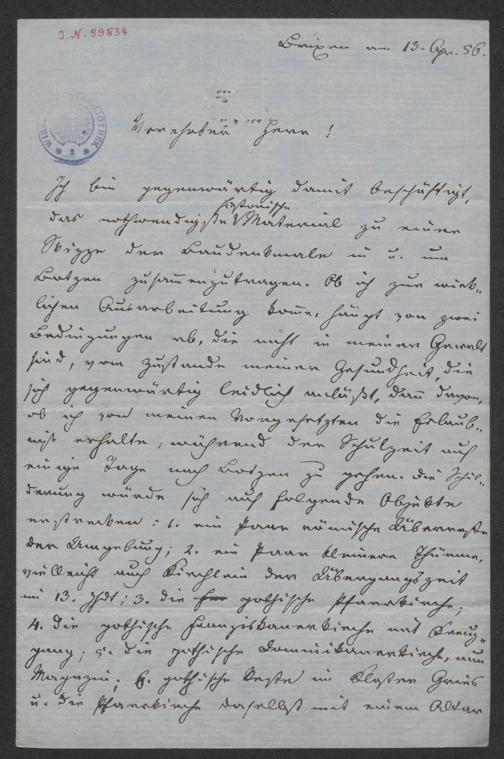 J.N. 99834
Brixen am 13. Apr. 56.
Verehrter Herr!
Ich bin gegenwärtig damit beschäftigt,
historische
das nothwendigste Material zu einer
Skizze der Baudenkmale in u. um
Botzen zusammenzutragen. Ob ich zur wirk-
lichen Ausarbeitung komme, hängt von zwei
Bedingungen ab, die nicht in meiner Gewalt
sind, vom Zustande meiner Gesundheit, die
sich gegenwärtig leidlich anläßt, dann davon,
ob ich von meinen Vorgesetzten die Erlaub-
niß erhalte, während der Schulzeit auf
einige Tage nach Botzen zu gehen. Die Schil-
derung würde sich auf folgende Objekte
erstrecken: 1. ein Paar römische Überreste
der Umgebung; 2. ein Paar kleinere Thürme,
vielleicht auch Kirchlein der Übergangszeit
im 13. Jhdt; 3. die gothische Pfarrkirche;
4. die gothische Franziskanerkirche mit Kreuz-
gang; 5. die gothische Dominikanerkirche, nun
Magazin; 6. gothische Reste im Kloster Gries
u. die Pfarrkirche daselbst mit einem Altar